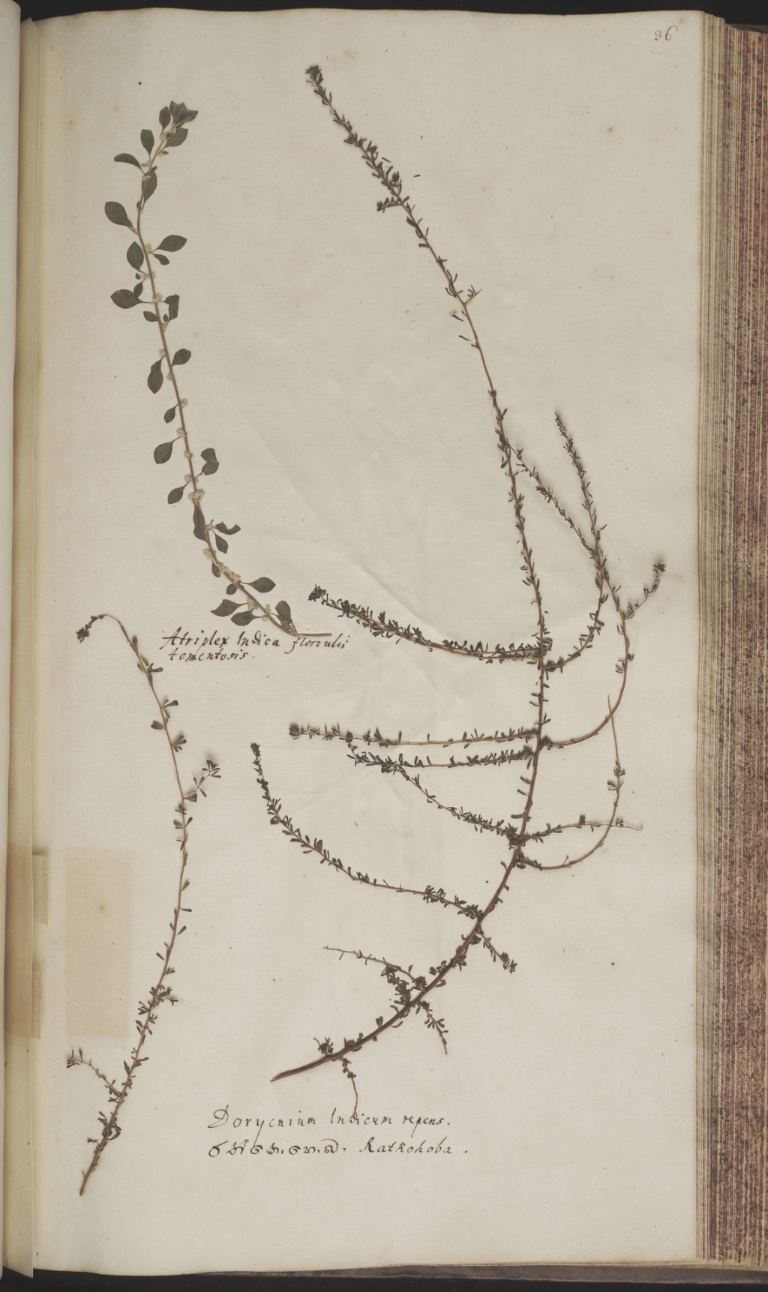 36
Atriplex Indica flosculis
tomentosis.
Dorycnium Indicum repens.
Ratkohoba.